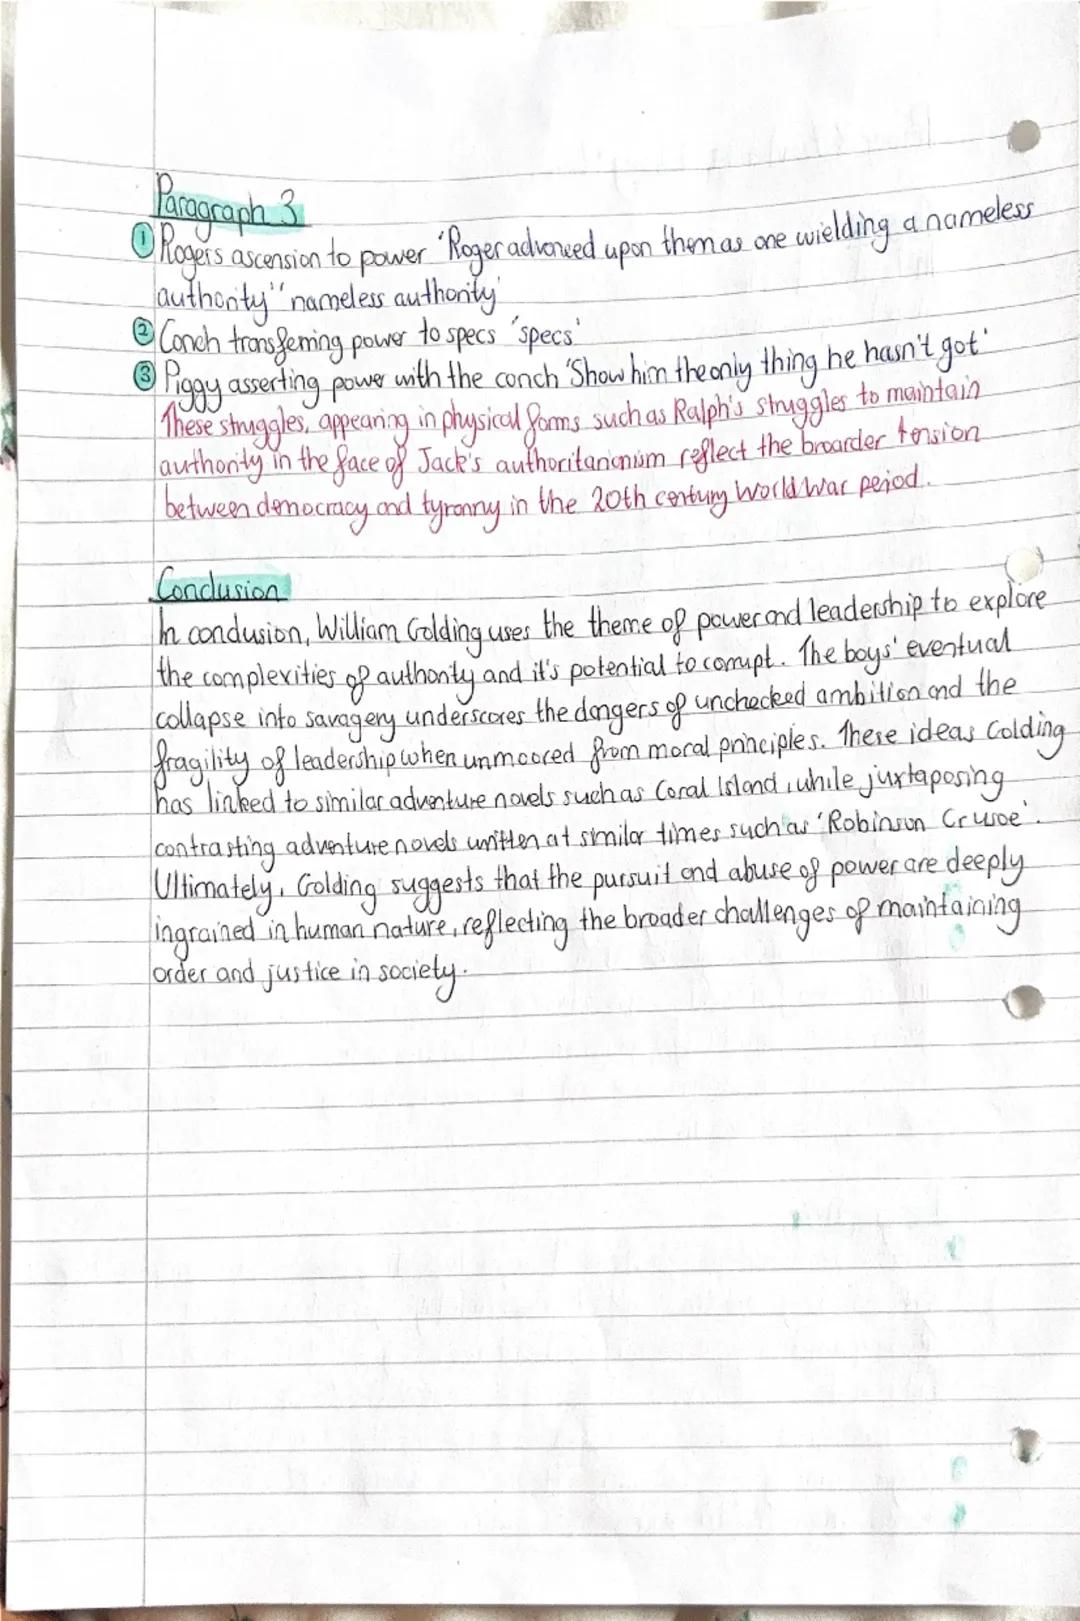 Paragraph 3
① Rogers ascension to power 'Roger advanced upon them as one wielding a nameless
authority' 'nameless authority'
② Conch transferring power to specs 'specs'
③ Piggy asserting power with the conch 'Show him the only thing he hasn't got'
These struggles, appearing in physical forms such as Ralph's struggles to maintain
authority in the face of Jack's authoritarianism reflect the broarder tension
between democracy and tyranny in the 20th century World War period.
Conclusion
In conclusion, William Golding uses the theme of power and leadership to explore
the complexities of authority and it's potential to corrupt. The boys' eventual
collapse into savagery underscores the dangers of unchecked ambition and the
fragility of leadership when unmoored from moral principles. These ideas Golding
has linked to similar adventure novels such as Coral Island, while juxtaposing
contrasting adventure novels written at similar times such as 'Robinson Crusoe'.
Ultimately, Golding suggests that the pursuit and abuse of power are deeply
ingrained in human nature, reflecting the broader challenges of maintaining
order and justice in society.